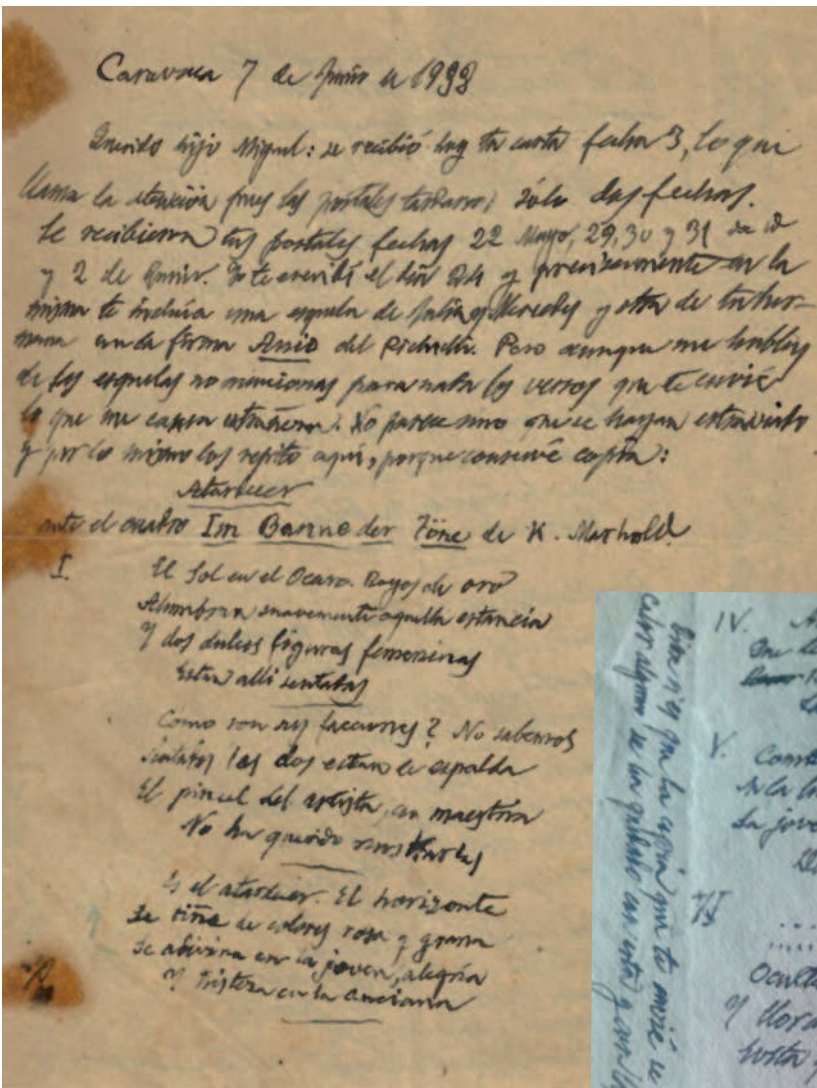 Caravaca 7 de Junio de 1938
Querido hijo Miguel: se recibió hoy tu carta fecha 3, lo que
llama la atención pues las postales tardaron sólo dos fechas.
Se recibieron tus postales fechas 22 Mayo, 29, 30 y 31 de id
y 2 de Junio. Yo te escribí el día 24 y precisamente en la
misma te incluía una esquela de Julia y Mercedes y otra de tu her-
mana en la firma Anio del Richelli. Pero aunque me hablas
de las esquelas no mencionas para nada los versos que te envié
lo que me causa extrañeza. No parece sino que se hayan extraviado
y por lo mismo los repito aquí, porque conservé copia:
Atardecer
ante el cuadro Im Banne der Töne de K. Marhold.
I. El Sol en el Ocaso. Rayos de oro
Alumbran suavemente aquella estancia
Y dos dulces figuras femeninas
Estan allí sentadas
Como son sus facciones? No sabemos
las dos estan de espalda
El pincel del artista, con maestria
No ha querido
Es el atardecer. El horizonte
Se tiñe de colores rosa y grana
Se adivina en la joven, alegría
Y tristeza en la anciana
IV.
Que
V. Como
A la
La jove
VI ....
....
Oculta
Y llora
que la copia que te envié se